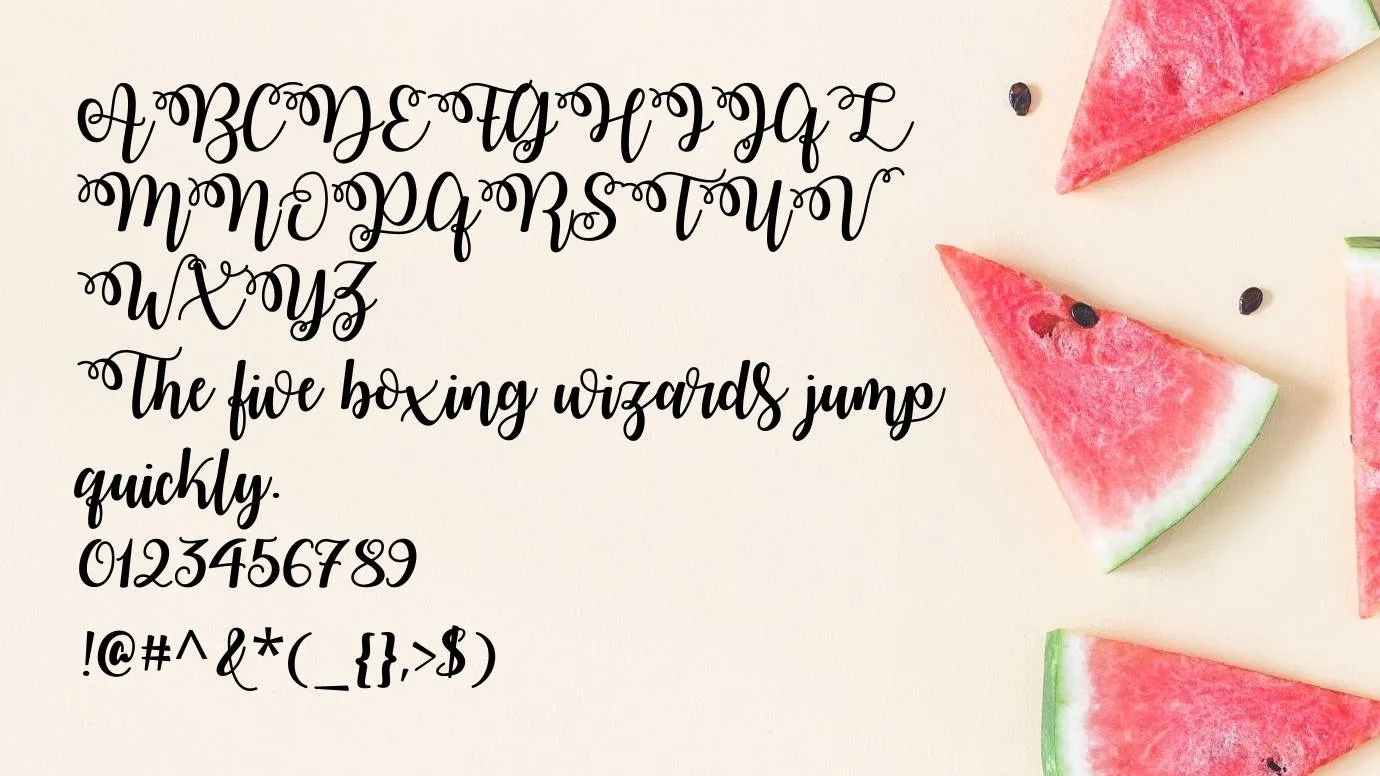 ABCDEFGHIJQL
MNOPQRSTUV
WXYZ
The five boxing wizards jump
quickly.
0123456789
!@#^&*(_{},>$)